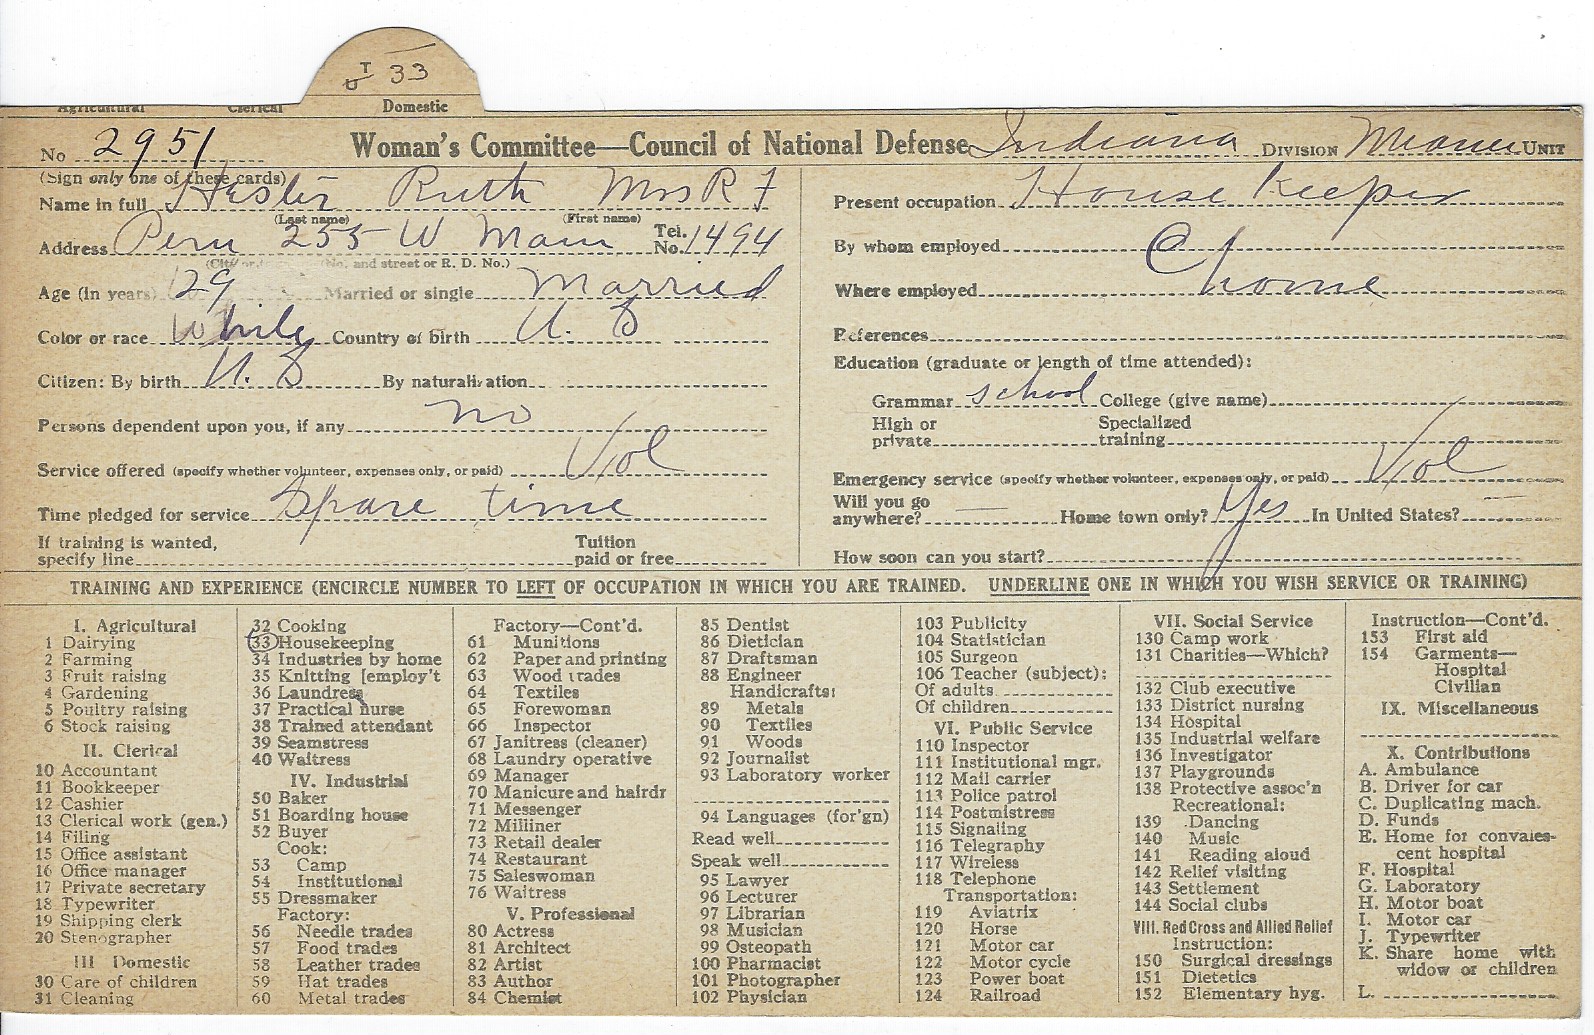 T 33
U
Agricultural Clerical Domestic
No 2951 Woman's Committee—Council of National Defense Indiana DIVISION Miami UNIT
(Sign only one of these cards)
Name in full Hester Ruth Mrs R F
(Last name) (First name)
Address Peru 255 W Main Tel. No. 1494
(No. and street or R. D. No.)
Age (in years) 29 Married or single Married
Color or race White Country of birth U. S
Citizen: By birth U. S By naturalization
Persons dependent upon you, if any no
Service offered (specify whether volunteer, expenses only, or paid) Vol
Time pledged for service Spare time
If training is wanted,
specify line Tuition
paid or free
Present occupation House Keeper
By whom employed @
Where employed home
References
Education (graduate or length of time attended):
Grammar school College (give name)
High or
private Specialized
training
Emergency service (specify whether volunteer, expenses only, or paid) Vol
Will you go
anywhere? — Home town only? Yes In United States? —
How soon can you start?
TRAINING AND EXPERIENCE (ENCIRCLE NUMBER TO LEFT OF OCCUPATION IN WHICH YOU ARE TRAINED. UNDERLINE ONE IN WHICH YOU WISH SERVICE OR TRAINING)
I. Agricultural
1 Dairying
2 Farming
3 Fruit raising
4 Gardening
5 Poultry raising
6 Stock raising
II. Clerical
10 Accountant
11 Bookkeeper
12 Cashier
13 Clerical work (gen.)
14 Filing
15 Office assistant
16 Office manager
17 Private secretary
18 Typewriter
19 Shipping clerk
20 Stenographer
III Domestic
30 Care of children
31 Cleaning
32 Cooking
33 Housekeeping
34 Industries by home
35 Knitting [employ't
36 Laundress
37 Practical nurse
38 Trained attendant
39 Seamstress
40 Waitress
IV. Industrial
50 Baker
51 Boarding house
52 Buyer
Cook:
53 Camp
54 Institutional
55 Dressmaker
Factory:
56 Needle trades
57 Food trades
58 Leather trades
59 Hat trades
60 Metal trades
Factory—Cont'd.
61 Munitions
62 Paper and printing
63 Wood trades
64 Textiles
65 Forewoman
66 Inspector
67 Janitress (cleaner)
68 Laundry operative
69 Manager
70 Manicure and hairdr
71 Messenger
72 Milliner
73 Retail dealer
74 Restaurant
75 Saleswoman
76 Waitress
V. Professional
80 Actress
81 Architect
82 Artist
83 Author
84 Chemist
85 Dentist
86 Dietician
87 Draftsman
88 Engineer
Handicrafts:
89 Metals
90 Textiles
91 Woods
92 Journalist
93 Laboratory worker
94 Languages (for'gn)
Read well
Speak well
95 Lawyer
96 Lecturer
97 Librarian
98 Musician
99 Osteopath
100 Pharmacist
101 Photographer
102 Physician
103 Publicity
104 Statistician
105 Surgeon
106 Teacher (subject):
Of adults
Of children
VI. Public Service
110 Inspector
111 Institutional mgr.
112 Mail carrier
113 Police patrol
114 Postmistress
115 Signaling
116 Telegraphy
117 Wireless
118 Telephone
Transportation:
119 Aviatrix
120 Horse
121 Motor car
122 Motor cycle
123 Power boat
124 Railroad
VII. Social Service
130 Camp work
131 Charities—Which?
132 Club executive
133 District nursing
134 Hospital
135 Industrial welfare
136 Investigator
137 Playgrounds
138 Protective assoc'n
Recreational:
139 Dancing
140 Music
141 Reading aloud
142 Relief visiting
143 Settlement
144 Social clubs
VIII. Red Cross and Allied Relief
Instruction:
150 Surgical dressings
151 Dietetics
152 Elementary hyg.
Instruction—Cont'd.
153 First aid
154 Garments—
Hospital
Civilian
IX. Miscellaneous
X. Contributions
A. Ambulance
B. Driver for car
C. Duplicating mach.
D. Funds
E. Home for convales-
cent hospital
F. Hospital
G. Laboratory
H. Motor boat
I. Motor car
J. Typewriter
K. Share home with
widow or children
L.